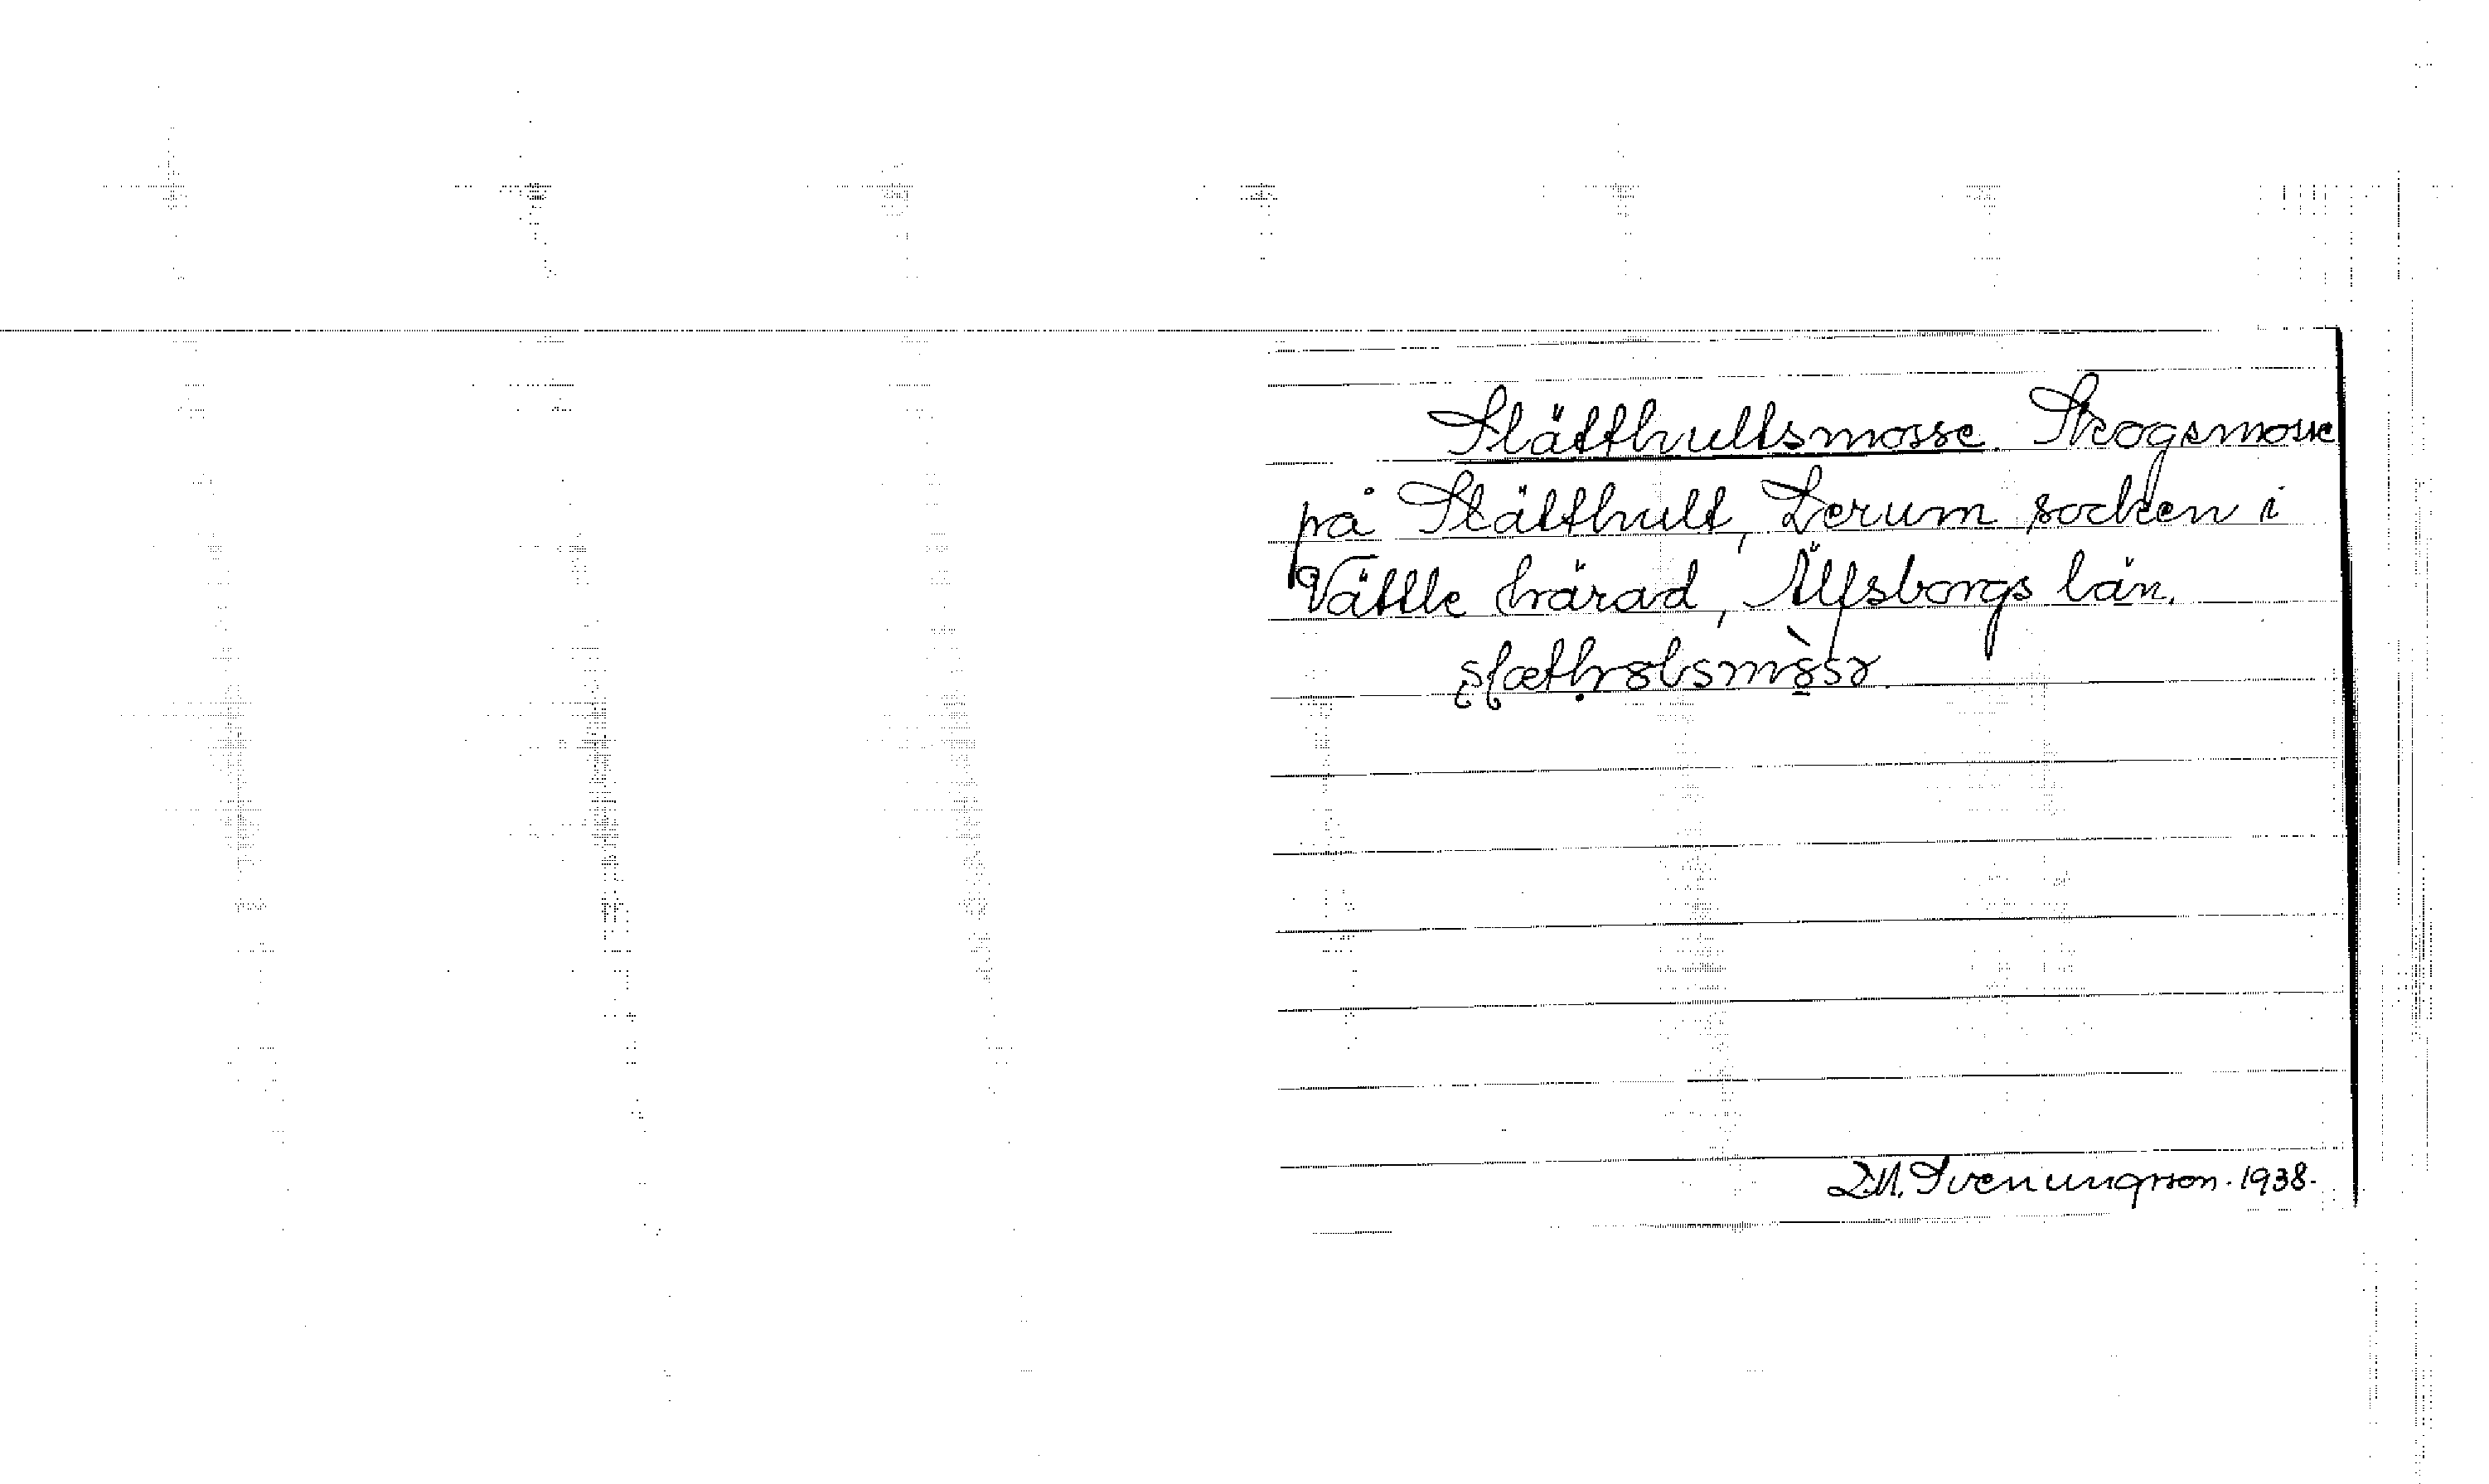 Slätthultsmosse. Skogsmosse
på Slätthult, Lerum socken i
Vättle härad, Älfsborgs län.
L.M. Svenungsson. 1938.